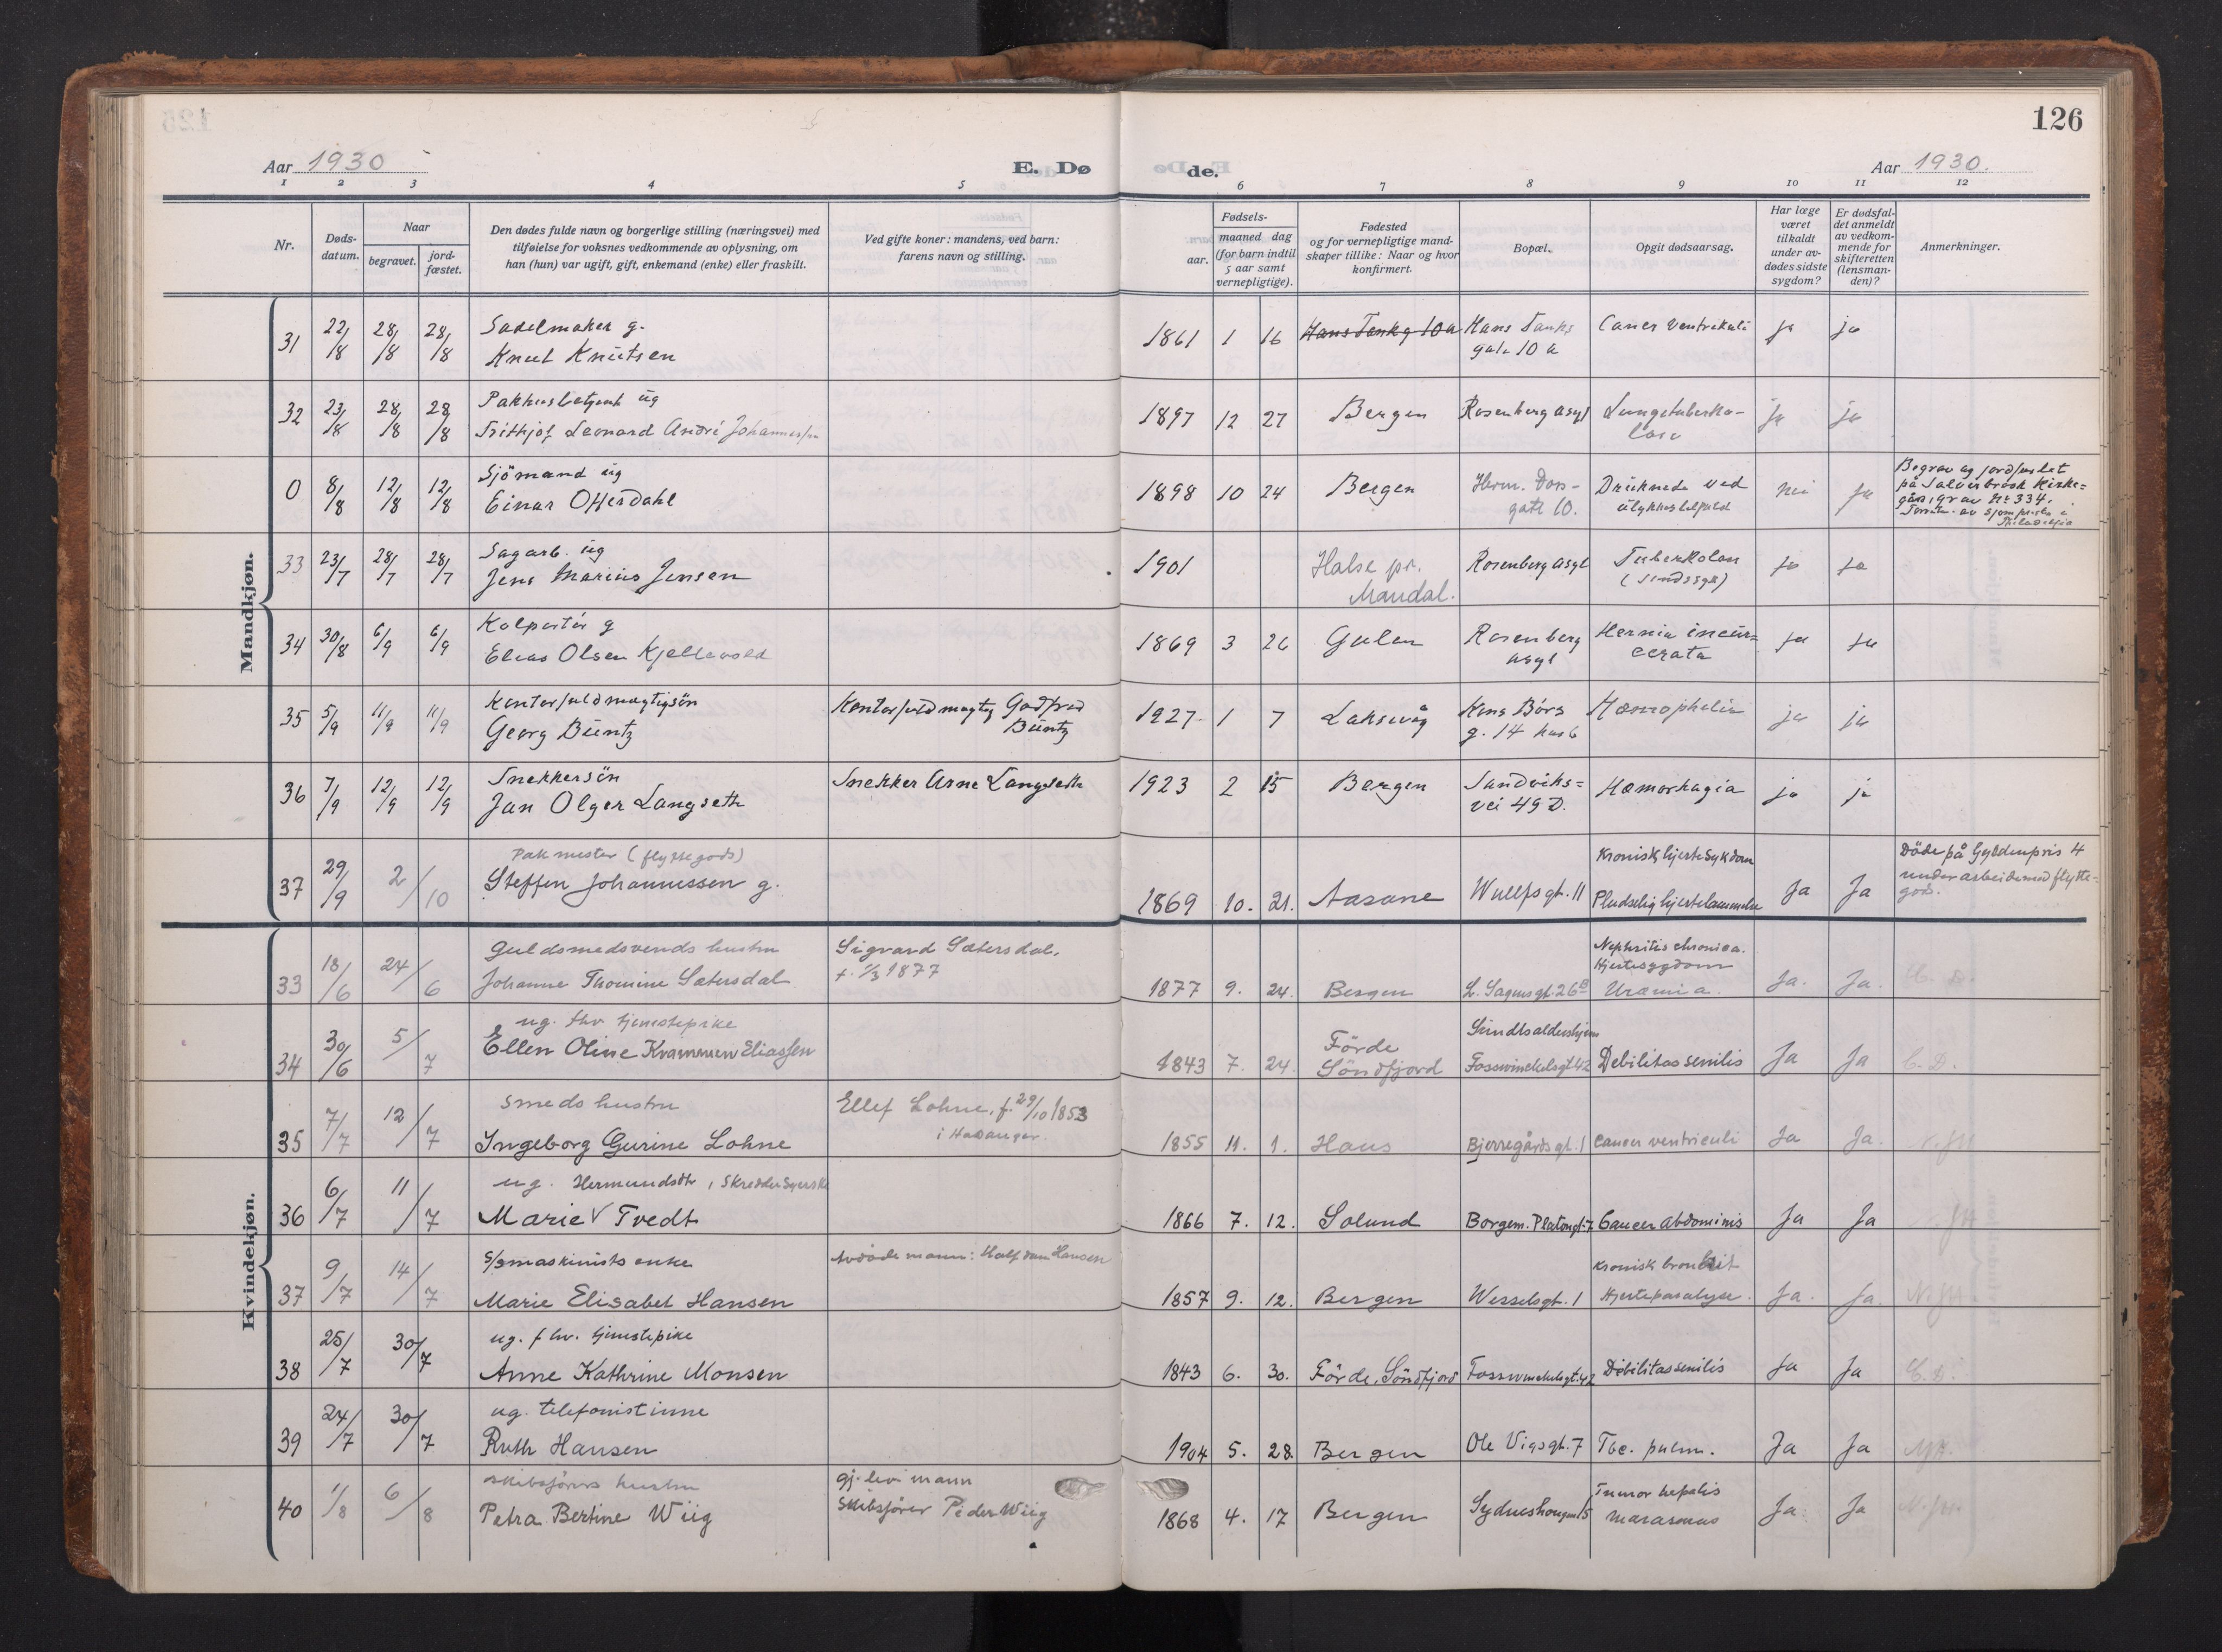 126
Aar 1930
E. Dø
de.
Aar 1930.
1 2 3 4 5 6 7 8 9 10 11 12
Nr.
Døds-
datum.
Naar
begravet.
jord-
fæstet.
Den dødes fulde navn og borgerlige stilling (næringsvei) med
tilføielse for voksnes vedkommende av oplysning, om
han (hun) var ugift, gift, enkemand (enke) eller fraskilt.
Ved gifte koner: mandens, ved barn:
farens navn og stilling.
Fødsels-
aar.
maaned dag
(for barn indtil
5 aar samt
vernepligtige).
Fødested
og for vernepligtige mand-
skaper tillike: Naar og hvor
konfirmert.
Bopæl.
Opgit dødsaarsag.
Har læge
været
tilkaldt
under av-
dødes sidste
sygdom?
Er dødsfal-
det anmeldt
av vedkom-
mende for
skifteretten
(lensman-
den)?
Anmerkninger.
Mandkjøn.
31 22/8 28/8 28/8 Sadelmaker g.
Knut Knutsen
1861 1 16 Hans Tanksg 10a Hans Tanks
gate 10 a
Cancer Ventrikuli ja ja
32 23/8 28/8 28/8 Pakhusbetjent ug
Frithjof Leonard André Johannessen
1897 12 27 Bergen Rosenberg asyl Lungetuberku-
lose
ja ja
0 8/8 12/8 12/8 Sjömand ug
Einar Offerdahl
1898 10 24 Bergen Herm. Foss-
gate 10.
Druknede ved
ulykkestilfeld
nei ja
Begrav og jordfestet
på Kirke-
gård grav nr 334.
Philadelfia
33 23/7 28/7 28/7 Sagarb. ug
Jens Marius Jensen
1901 Halse pr.
Mandal.
Rosenberg asyl Tuberkolose
(Sindssyk)
ja ja
34 30/8 6/9 6/9 Kolportör g
Elias Olsen Kjellevold
1869 3 26 Gulen Rosenberg
asyl
Hernia incar=
cerata
ja ja
35 5/9 11/9 11/9 Kontorfuldmegtigsön
Georg Büntz
Kontorfuldmegtig Godfred
Büntz
1927 1 7 Laksevåg Kong
g. 14
Hæmophelia ja ja
36 7/9 12/9 12/9 Snekkersön
Jan Olger Langseth
Snekker Arne Langseth
1923 2 15 Bergen Sandviks=
vei 49 D.
Hæmorhagia ja ja
37 29/9 2/10 Pakmester (flyttegods)
Steffen Johannessen g.
1869 10. 21. Aasane Wulffsgt. 11
Kronisk hjertesykdom
Pludselig hjertelammelse
Ja Ja
Döde på Gyldenpris 4
under arbeide med flytte=
gods.
Kvindekjøn.
33 18/6 24/6 Guldsmedsvends hustru
Johanne Thomine Sætersdal
Sigvard Sætersdal,
f. 1/3 1877
1877 9. 24. Bergen L. Sagensgt. 26B
Nephritis chronica.
Hjertesygdom
Uræmia.
Ja. Ja.
34 30/6 5/7 ug. fhv tjenestepike
Ellen Oline Kvammen Eliassen
1843 7. 24. Förde
Söndfjord
Sundts aldershjem
Fosswinckelsgt 42
Debilitas senilis Ja Ja C. D.
35 7/7 12/7 Smeds hustru
Ingeborg Gurine Lohne
Ellef Lohne, f. 29/10 1853
i Hadanger.
1855 11. 1. Haus Bjerregårdsgt. 1 Cancer ventriculi Ja Ja.
36 6/7 11/7 ug. Hermundsdtr, Skreddersyerske
Marie V Tvedt
1866 7. 12. Solund Borgem. Platougt. 7 Cancer abdominis Ja Ja
37 9/7 14/7 S/Smaskinists enke
Marie Elisabet Hansen
Avdöde mann: Halfdan Hansen
1857 9. 12. Bergen Wesselsgt. 1
Kronisk bronkit
Hjerteparalyse.
Ja. Ja.
38 25/7 30/7 ug. fhv. tjenestepike
Anne Kathrine Monsen
1843 6. 30. Förde, Söndfjord Fosswinckelsgt. 42 Debilitas senilis Ja Ja
39 24/7 30/7 ug. telefonistinne
Ruth Hansen
1904 5. 28. Bergen Ole Vigsgt. 7 Tbc. pulm. Ja Ja
40 1/8 6/8 Skibsförers hustru
Petra Bertine Wiig
gj.lev. mann
Skibsförer Peder Wiig
1868 4. 17 Bergen Sydneshougen 15
Tumor hepatis
Marasmus
Ja Ja